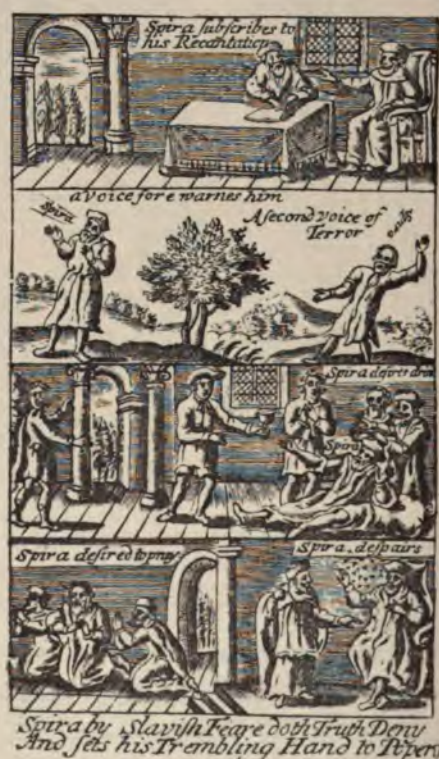 Spira subscribes to
his Recantation
a voice forewarnes him
Spira
A second voice of
Terror
Spira
Spira desires drin
Spira
Spira desired to pray
Spira despairs
Spira by Slavish Feare doth Truth Deny
And sets his Trembling Hand to Poperi